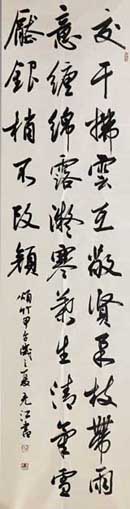 交干拂雲互敬賢柔枝帶雨
意纏綿露凝寒葉生清氣雪
壓銀梢不改顏
頌竹甲午歲之夏元江書